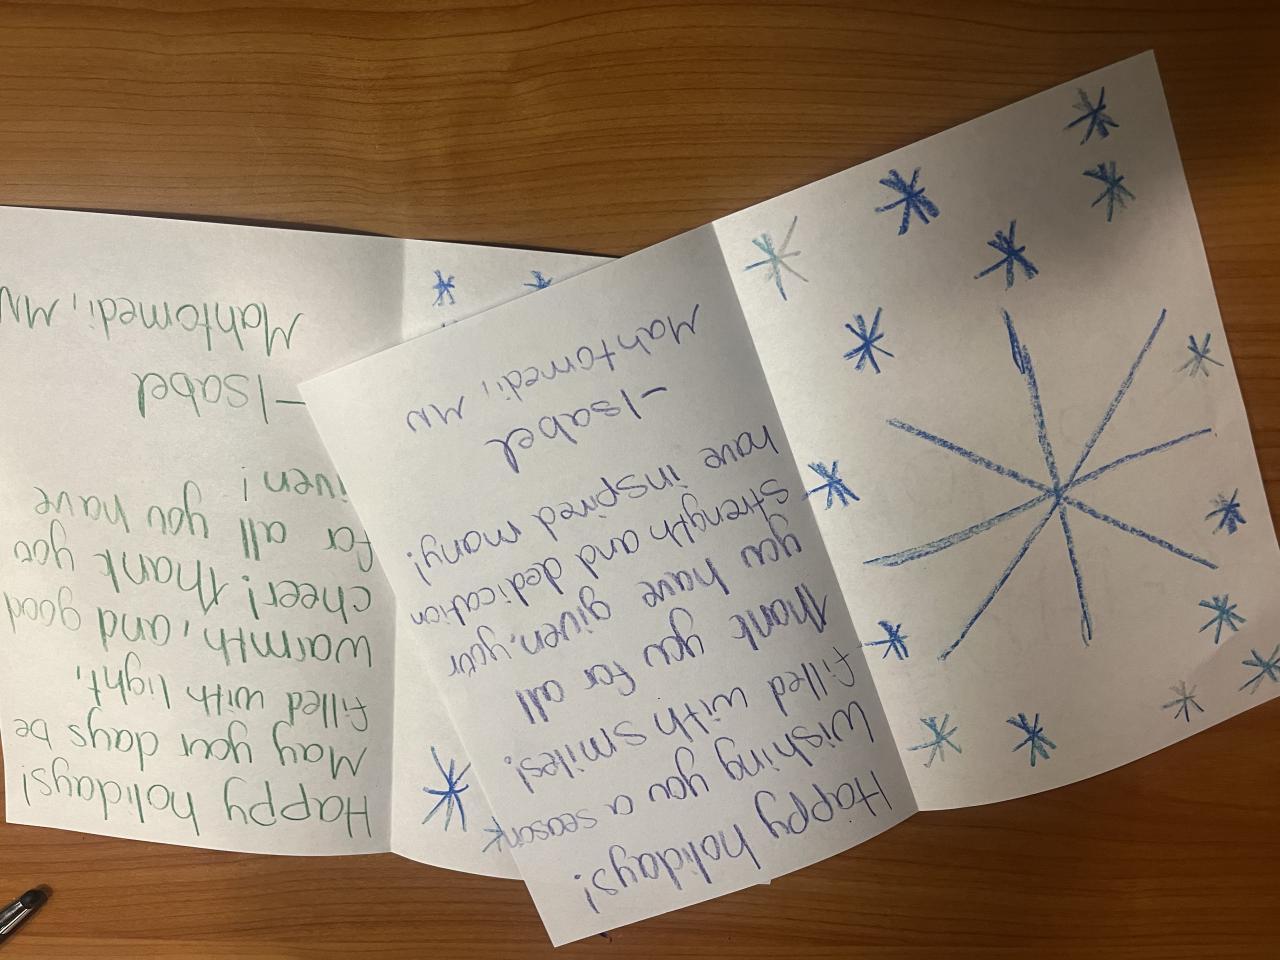 Happy holidays!
May your days be
filled with light,
warmth, and good
cheer! Thank you
for all you have
given!
-Isabel
Mahtomedi, MN
Happy holidays!
Wishing you a season
filled with smiles!
Thank you for all
you have given, your
strength and dedication
have inspired many!
-Isabel
Mahtomedi, MN